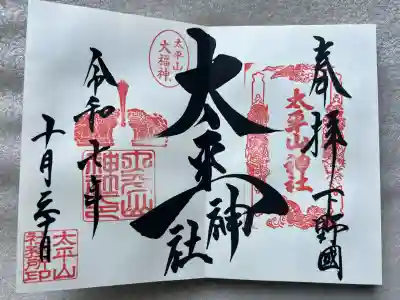 奉拝 下野國
太平山神社
太平山
大福神
太平神社
令和六年
十月 日
太平山
神社之印
太平山
社務所印